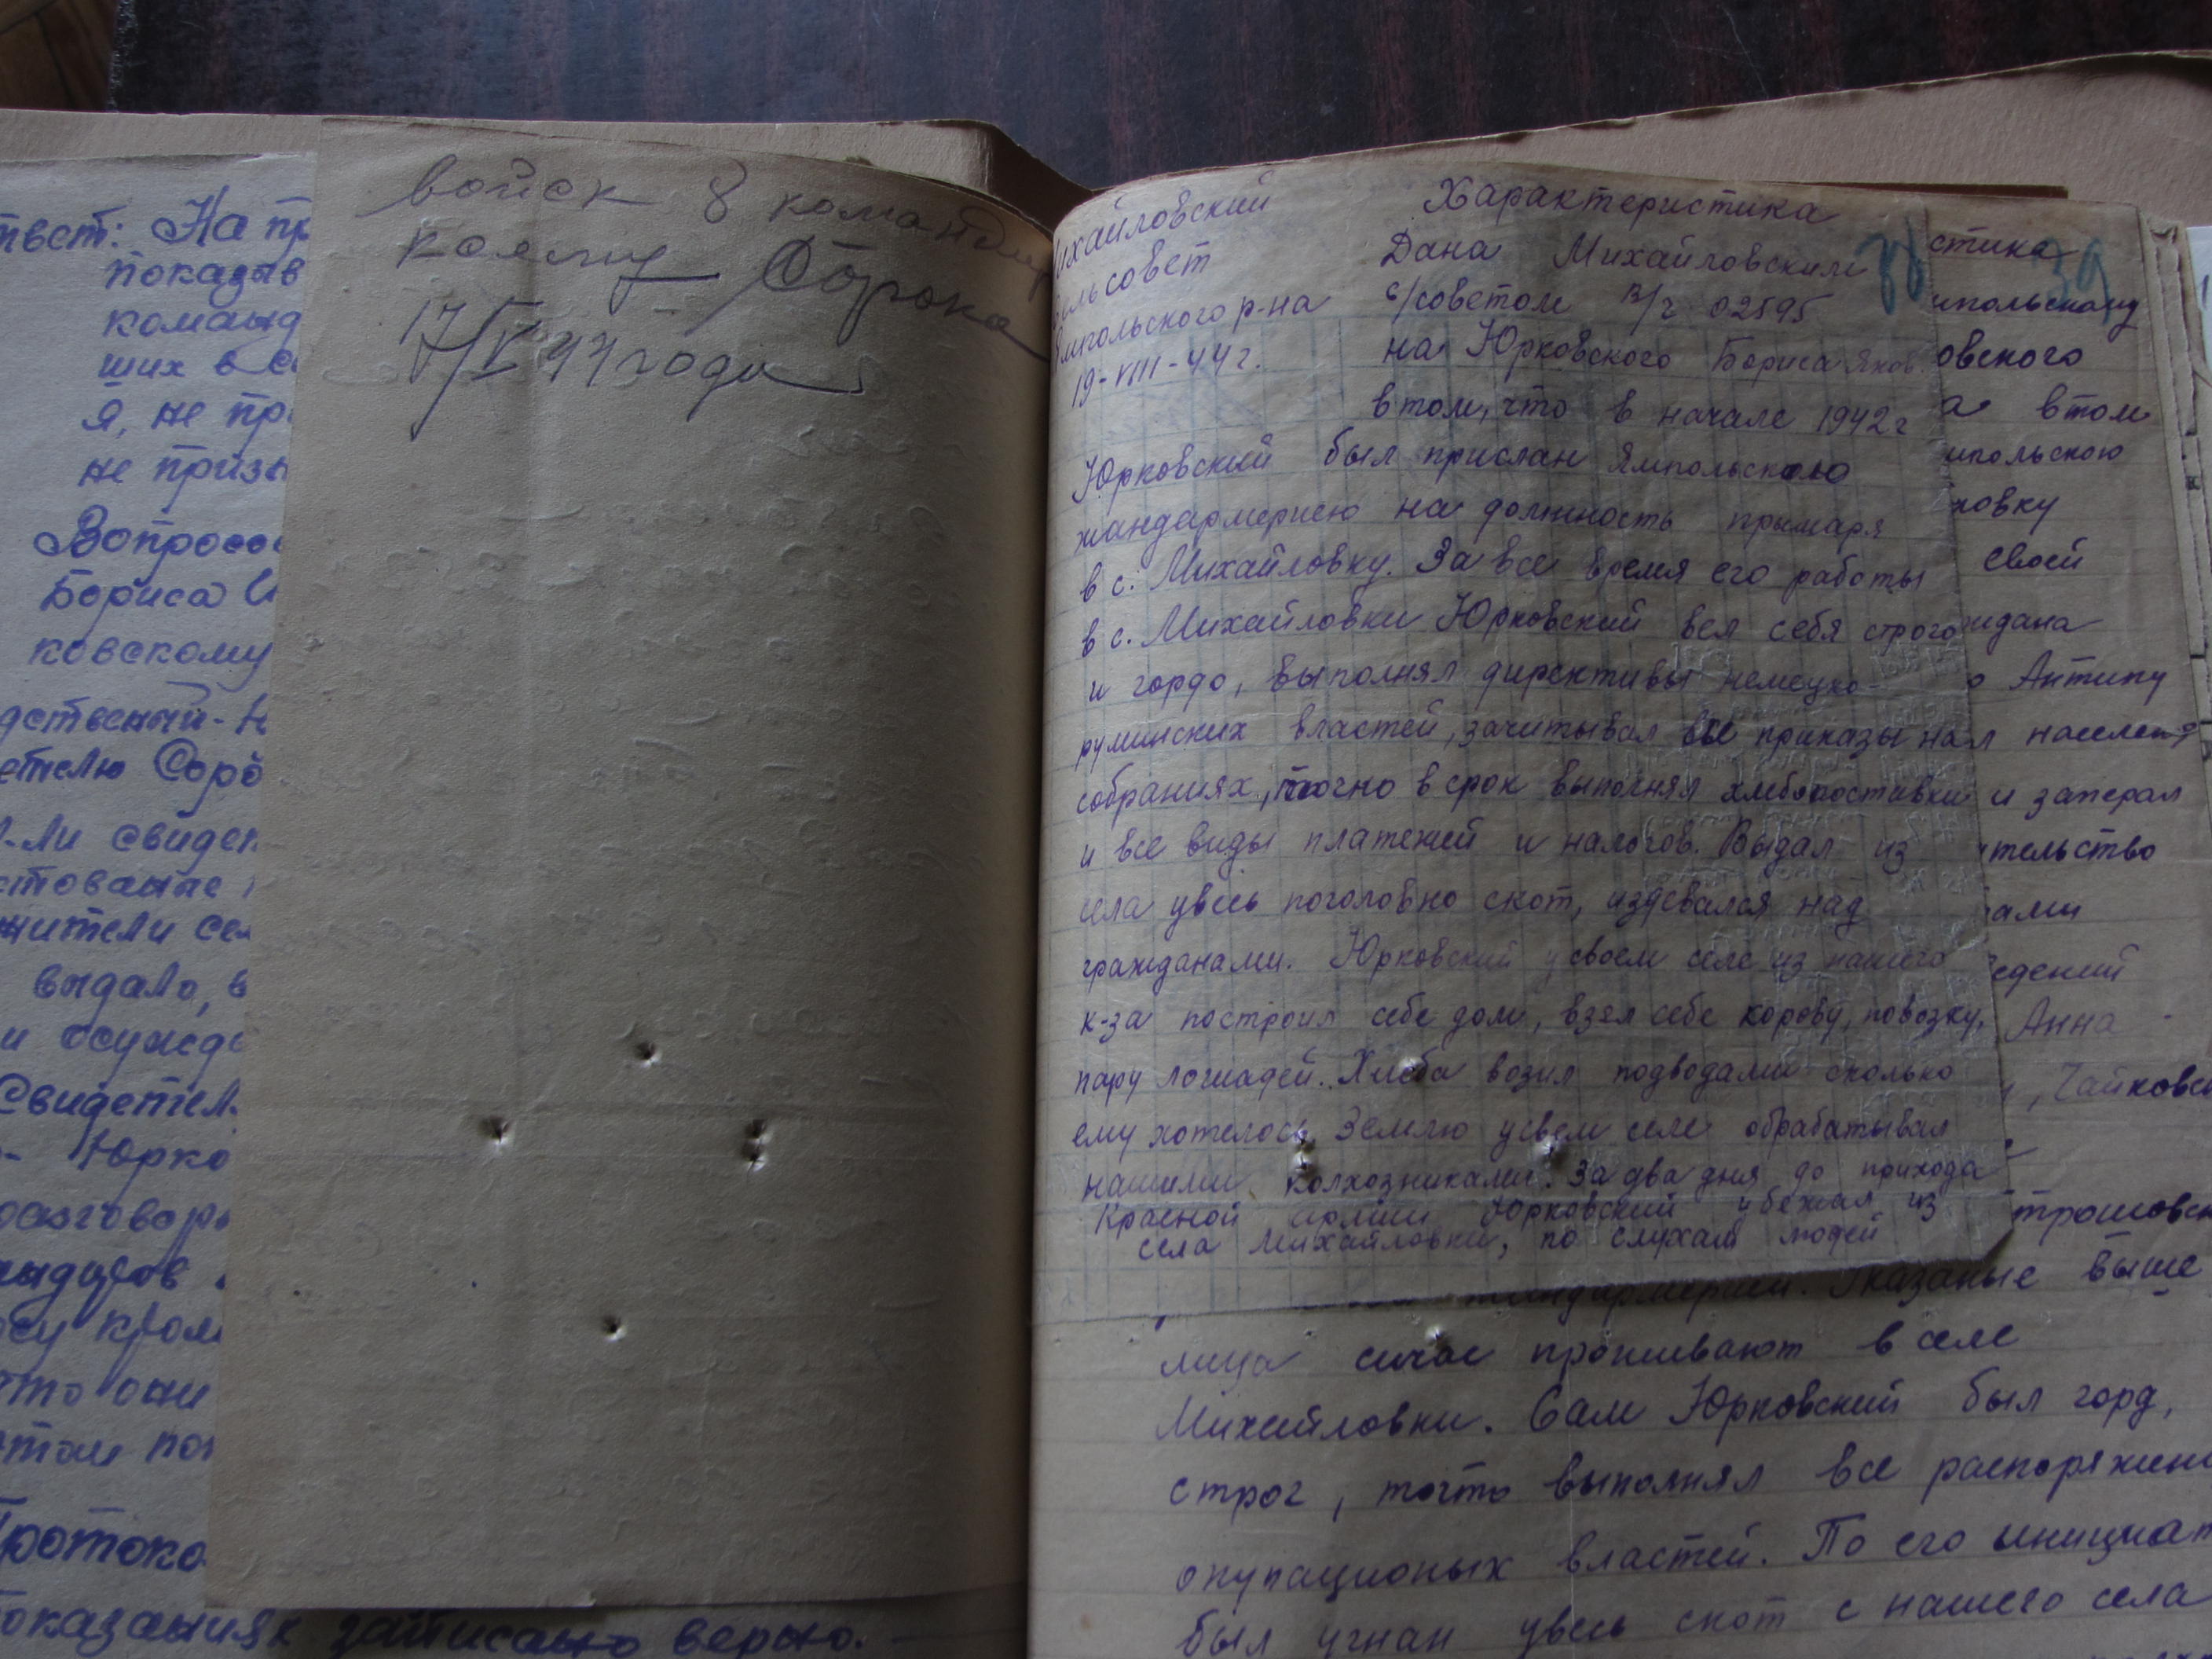 твет: На пр
показыв
команд
ших в с
я, не пр
не призы
Вопрос
Бориса
ковскому
дственный
етелю Соро
ли свидет
жители се
выдало, в
и осужд
Свидетел
Юрко
разговор
кром
что они
этом по
Протоко
оказаниях записано верно.
войск 8 командир
Сорока
17/V 44 года
Михайловский
сельсовет
Ямпольского р-на
19-VIII-44г.
Характеристика
38
Дана Михайловским
с/советом п/ч 02595
на Юрковского Бориса Яков.
в том, что в начале 1942 г
Юрковский был прислан Ямпольскою
жандармериею на должность примаря
в с. Михайловку. За все время его работы
в с. Михайловки Юрковский вел себя строго
и гордо, выполнял директивы немецко-
руминских властей, зачитывал все приказы на
собраниях, точно в срок выполнял хлебопоставки
и все виды платежей и налогов. Выдал из
села увесь поголовно скот, издевался над
гражданами. Юрковский у своем селе из нашего
к-за построил себе дом, взял себе корову, повозку,
пару лошадей. Хлеба возил подводами сколько
ему хотелось. Землю у свем селе обрабатывал
нашими колхозниками. За два дня до прихода
Красной армии Юрковский убежал из
села Михайловки, по слухам людей
39
стика
мпольскому
овского
а втом
мпольскою
ловку
своей
ждана
о Антипу
л населен
и заперал
ительство
ами
едений
Анна
, Чайковс
жандармерии. Указаные выше
лица сичас проживают в селе
Михайловки. Сам Юрковский был горд,
строг, точто выполнял все распоряжени
опупационых властей. По его инициат
был угнан увесь скот с нашего села